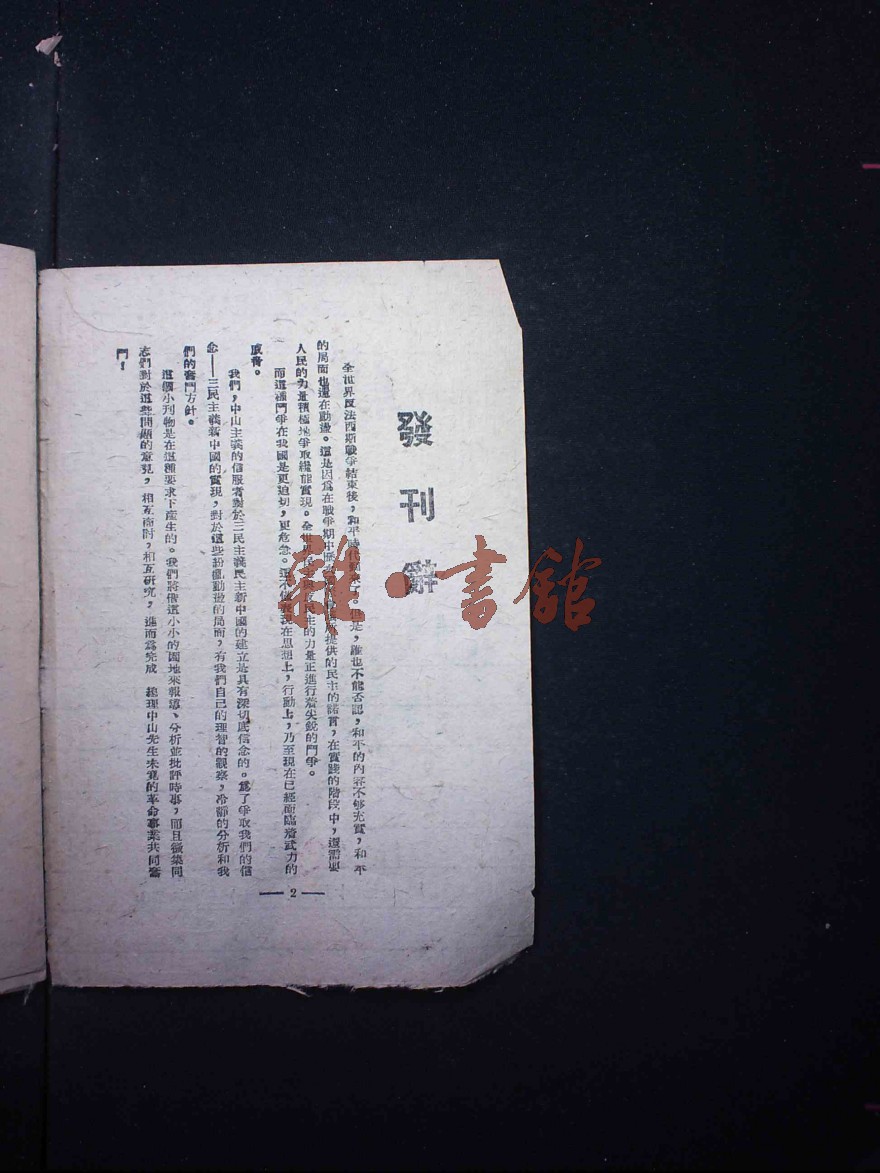 發刊辭
全世界反法西斯戰爭結束後，和平時代到來了。但是，誰也不能否認，和平的內容不够充實，和平
的局面也還在動盪。這是因爲在戰爭期中所提供的民主的諾言，在實踐的階段中，還需要
人民的力量積極地爭取纔能實現。全世界民主的力量正進行着尖銳的鬥爭。
而這種鬥爭在我國是更迫切，更危急。還不僅表現在思想上，行動上，乃至現在已經面臨着武力的
威脅。
我們，中山主義的信服者對於三民主義民主新中國的建立是具有深切底信念的。爲了爭取我們的信
念——三民主義新中國的實現，對於這些紛擾動盪的局面，有我們自己的理智的觀察，冷靜的分析和我
們的奮鬥方針。
這個小刊物是在這種要求下產生的。我們將借這小小的園地來報導、分析並批評時事，而且徵集同
志們對於這些問題的意見，相互商討，相互研究，進而爲完成　總理中山先生未竟的革命事業共同奮
鬥！
— 2 —
雜·書館